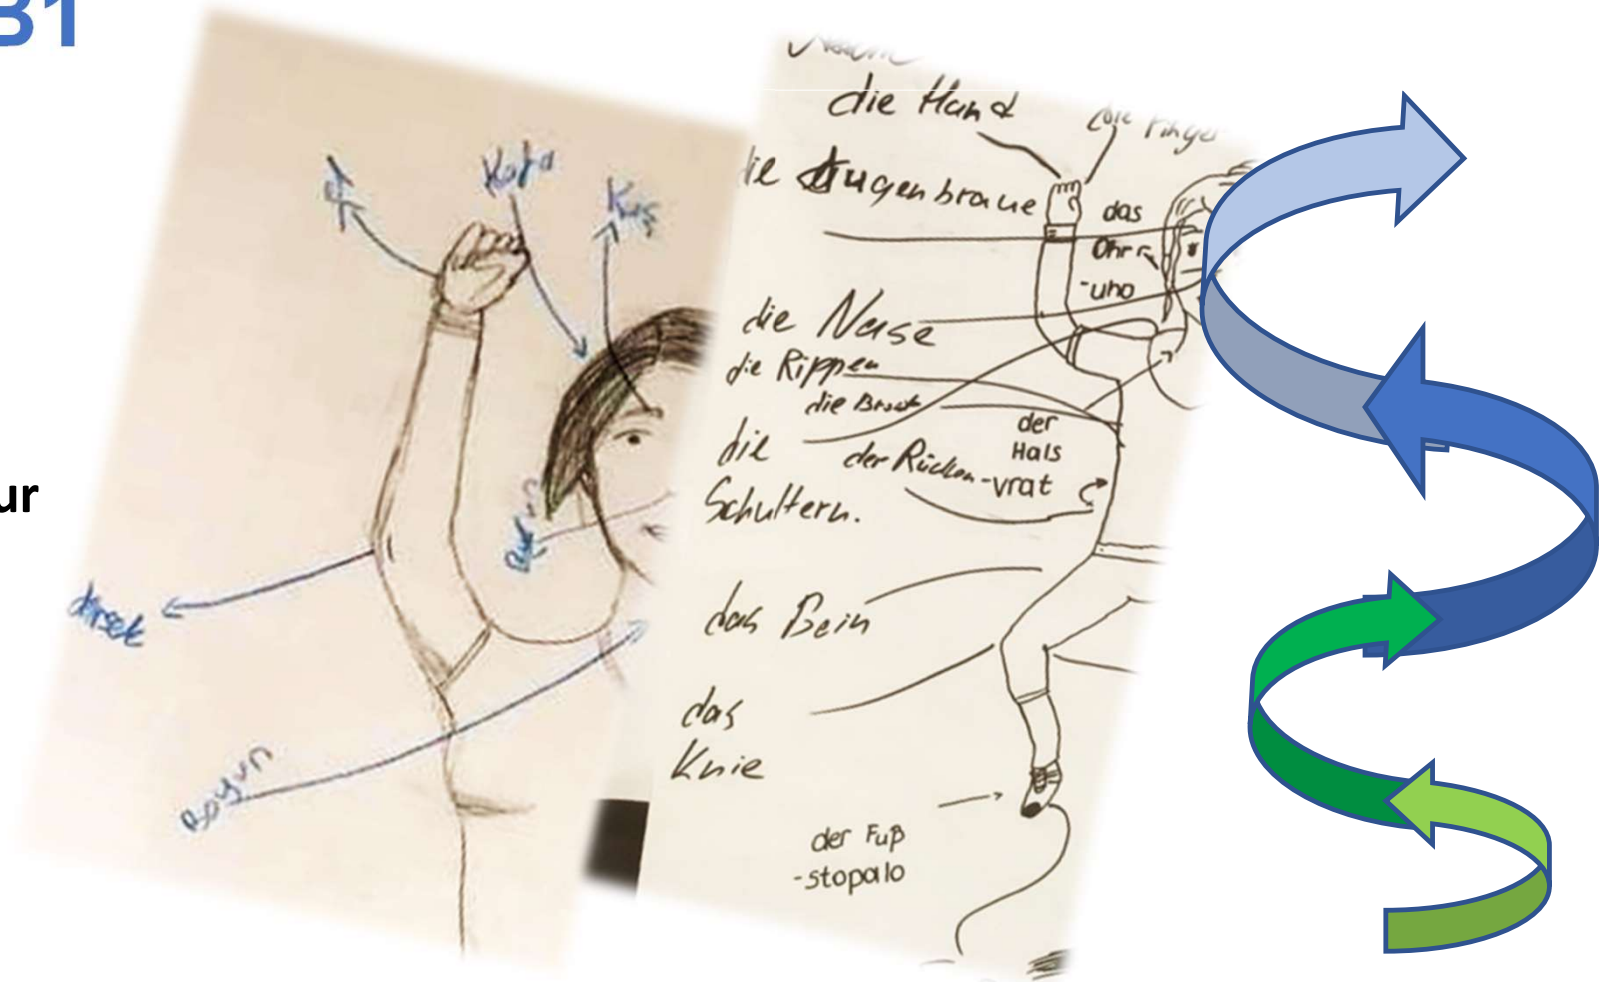 B1
ur
Kafa
Kaş
dirsek
Boyun
die Hand
die Finger
die Augenbraue
das
Ohr
-uho
die Nase
die Rippen
die Brust
der
Hals
-vrat
die
Schultern.
der Rücken
das Bein
das
Knie
der Fuß
-stopalo